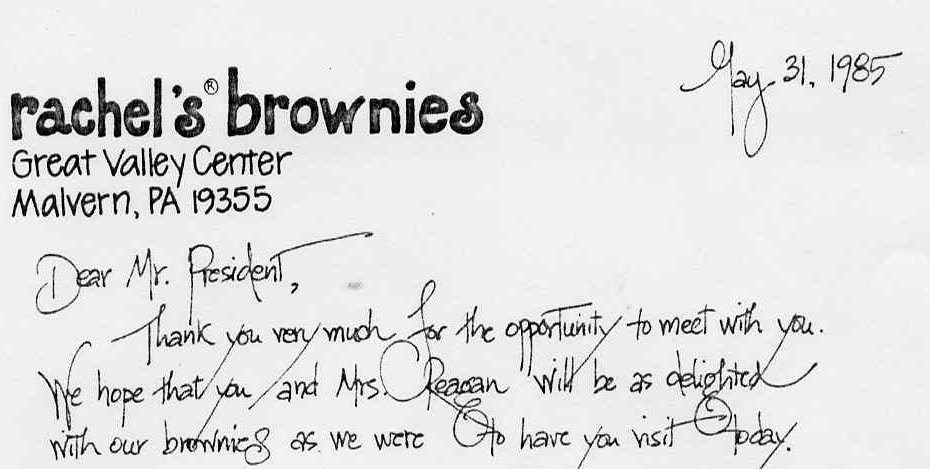 May 31, 1985
rachel's® brownies
Great Valley Center
Malvern, PA 19355
Dear Mr. President,
Thank you very much for the opportunity to meet with you.
We hope that you and Mrs. Reagan will be as delighted
with our brownies as we were to have you visit today.